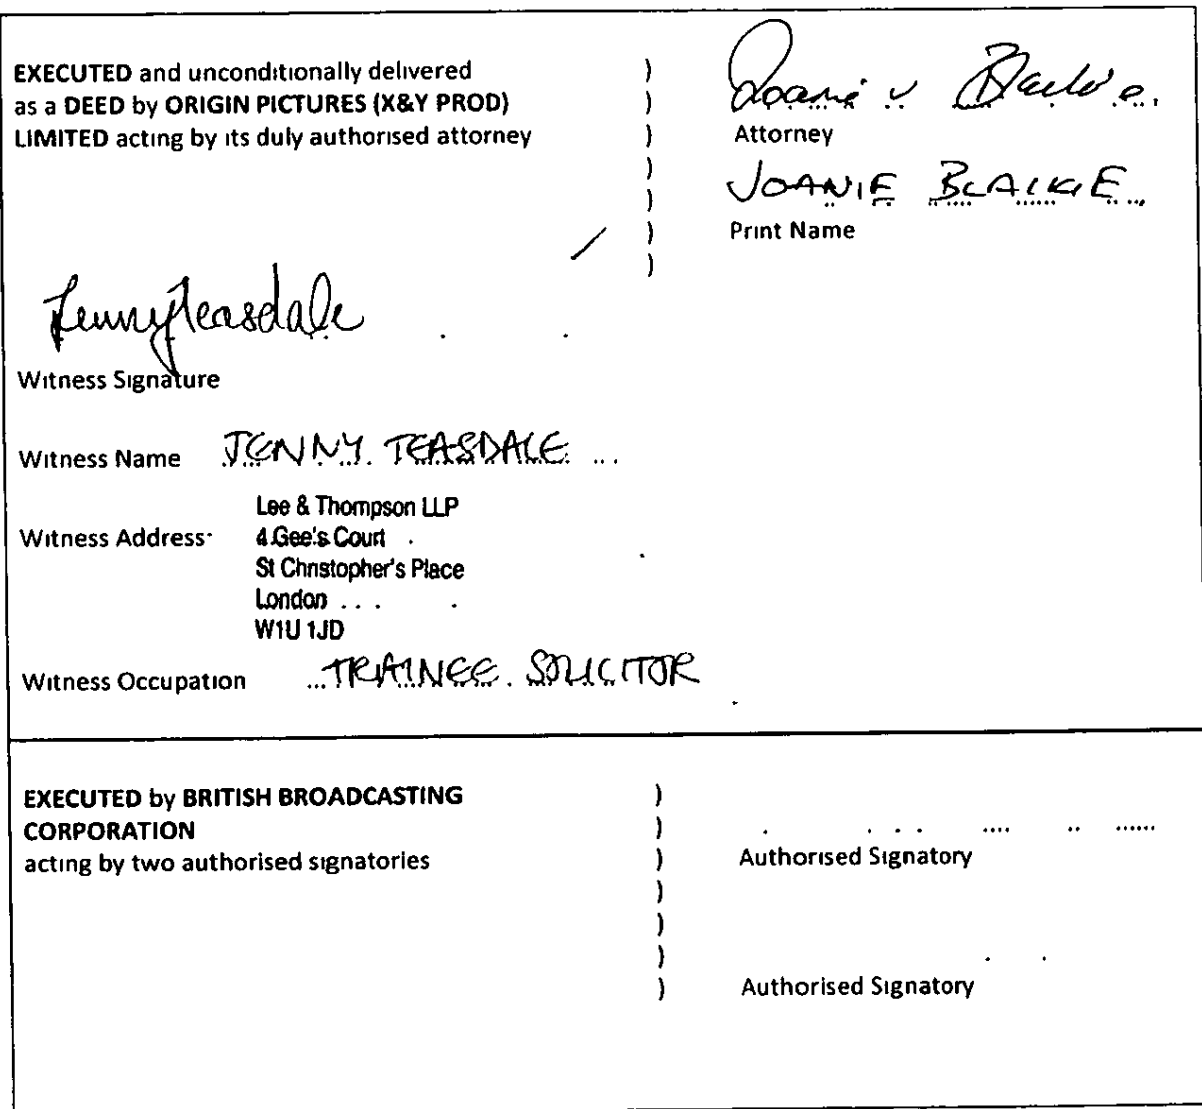 EXECUTED and unconditionally delivered
as a DEED by ORIGIN PICTURES (X&Y PROD)
LIMITED acting by its duly authorised attorney
)
)
)
)
)
)
)
Joanie Blaikie
Attorney
JOANIE BLAIKIE
Print Name
Jenny Teasdale
Witness Signature
Witness Name JENNY TEASDALE
Witness Address
Lee & Thompson LLP
4 Gee's Court
St Christopher's Place
London
W1U 1JD
Witness Occupation TRAINEE SOLICITOR
EXECUTED by BRITISH BROADCASTING
CORPORATION
acting by two authorised signatories
)
)
)
)
)
)
)
Authorised Signatory
Authorised Signatory